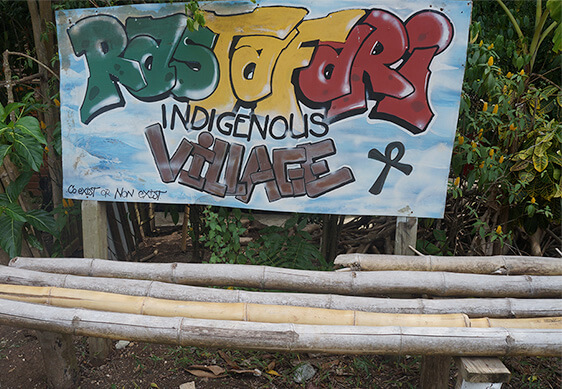 RasTafaRi
INDIGENOUS
VILLAGE
Co EXIST OR NON EXIST